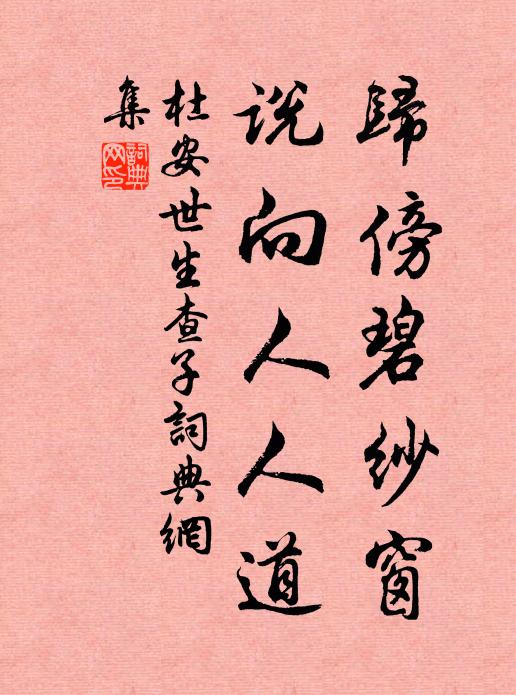 歸傍碧紗窗
說向人人道
杜安世生查子詞典網
集
詞典
网印